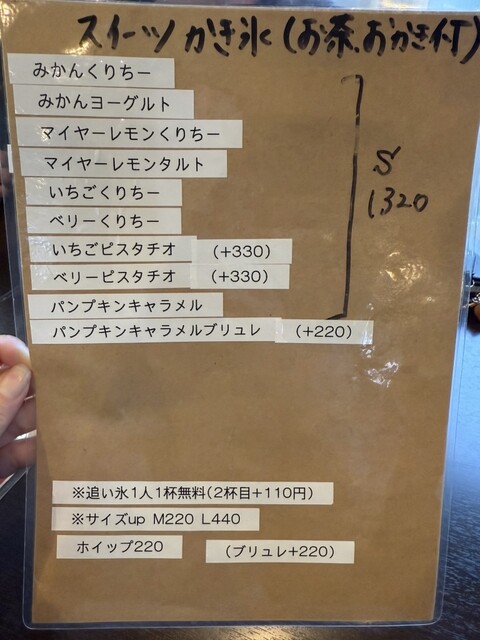 スイーツかき氷(お茶、おかき付)
みかんくりちー
みかんヨーグルト
マイヤーレモンくりちー
マイヤーレモンタルト
いちごくりちー
ベリーくりちー
いちごピスタチオ (+330)
ベリーピスタチオ (+330)
パンプキンキャラメル
パンプキンキャラメルブリュレ (+220)
S
1,320
※追い氷1人1杯無料(2杯目+110円)
※サイズup M220 L440
ホイップ220 (ブリュレ+220)